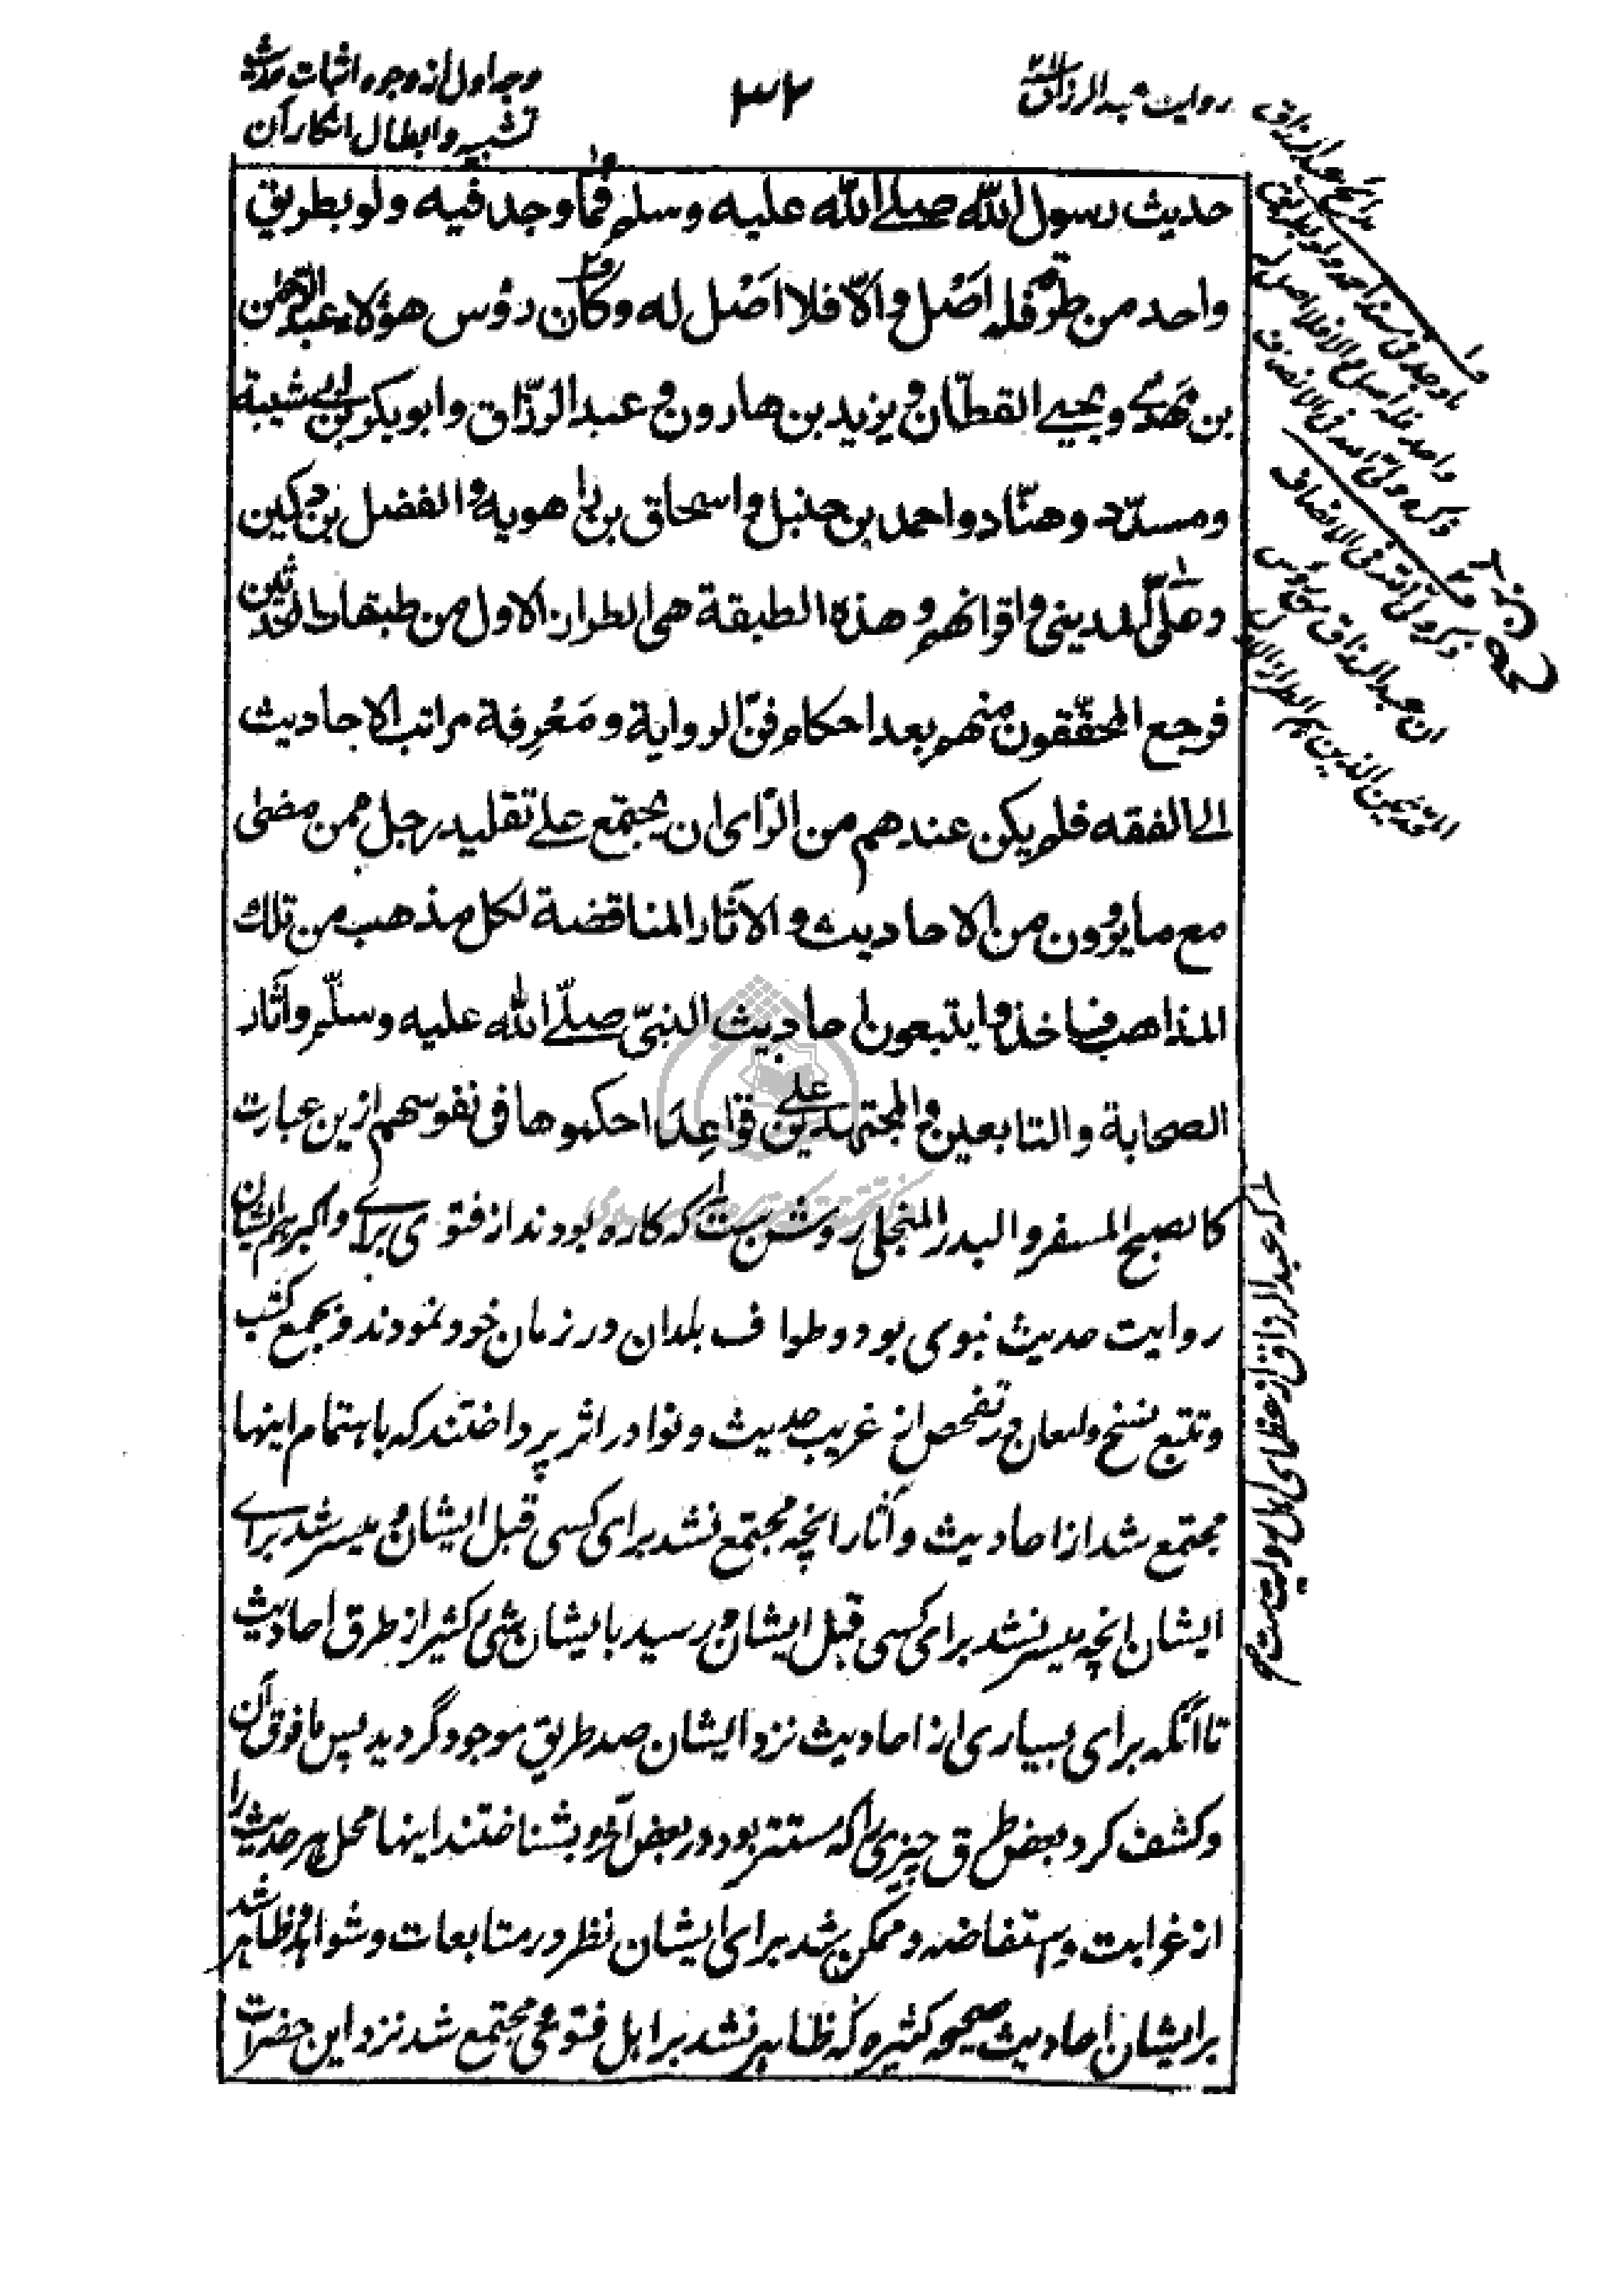 روایت عبدالرزاق
۳۲
وجه اول از وجوه اثبات حدیث
تشبیه و ابطال انکار آن
حدیث رسول الله صلے الله علیه وسلم فما وجد فیه ولو بطریق
واحد من طرقه فله اَصْل و الّا فلا اَصْل له وکان رؤس هؤلاء عبد الرحمٰن
بن مهدی و یحیی القطّان و یزید بن هارون و عبد الرزّاق و ابو بکر بن ابی شیبة
و مسدّد و هنّاد و احمد بن حنبل و اسحاق بن راهویه و الفضل بن دکین
و علیّ المدینی و اقرانهم و هذه الطبقة هی الطراز الاول من طبقات المحدثین
فرجع المحقّقون منهم بعد احکام فنّ الروایة و مَعْرِفة مراتب الاحادیث
الی الفقه فلم یکن عندهم من الرّای ان یجتمع علے تقلید رجل ممن مضٰی
مع ما یرَوُون من الاحادیث و الاٰثار المناقضة لکل مذهب من تلک
المذاهب فاخذوا یتبعون احادیث النبیّ صلّے الله علیه وسلّم و اٰثار
الصحابة و التابعین و المجتهدین علے قوَاعِدَ احکموها فی نفوسهم ازین عبارت
کالصبح المسفر و البدر المنجلی روشن ست که کاره بودند از فتوی برای و اکبر هم ایشان
روایت حدیث نبوی بود و طواف بلدان در زمان خود نمودند و بجمع کتب
و تتبع نسخ و امعان در تفحص از غریب حدیث و نوادر اثر پرداختند که باهتمام اینها
مجتمع شد از احادیث و آثار انچه مجتمع نشد برای کسی قبل ایشان و میسر شد برای
ایشان انچه میسر نشد برای کسی قبل ایشان و رسید بایشان شیٔ کثیر از طرق احادیث
تا آنکه برای بسیاری از احادیث نزد ایشان صد طریق موجود گردید پس ما فوق آن
و کشف کرد بعض طرق چیزی را که مستتر بود در بعض آخر و بشناختند اینها محل هر حدیث را
از غرابت و استفاضه و ممکن شد برای ایشان نظر در متابعات و شواهد و ظاهر شد
بر ایشان احادیث صحیحه کثیره که ظاهر نشد بر اهل فتوی مجتمع شد نزد این حضرات
که عبدالرزاق از عظمای اهل روایت ست